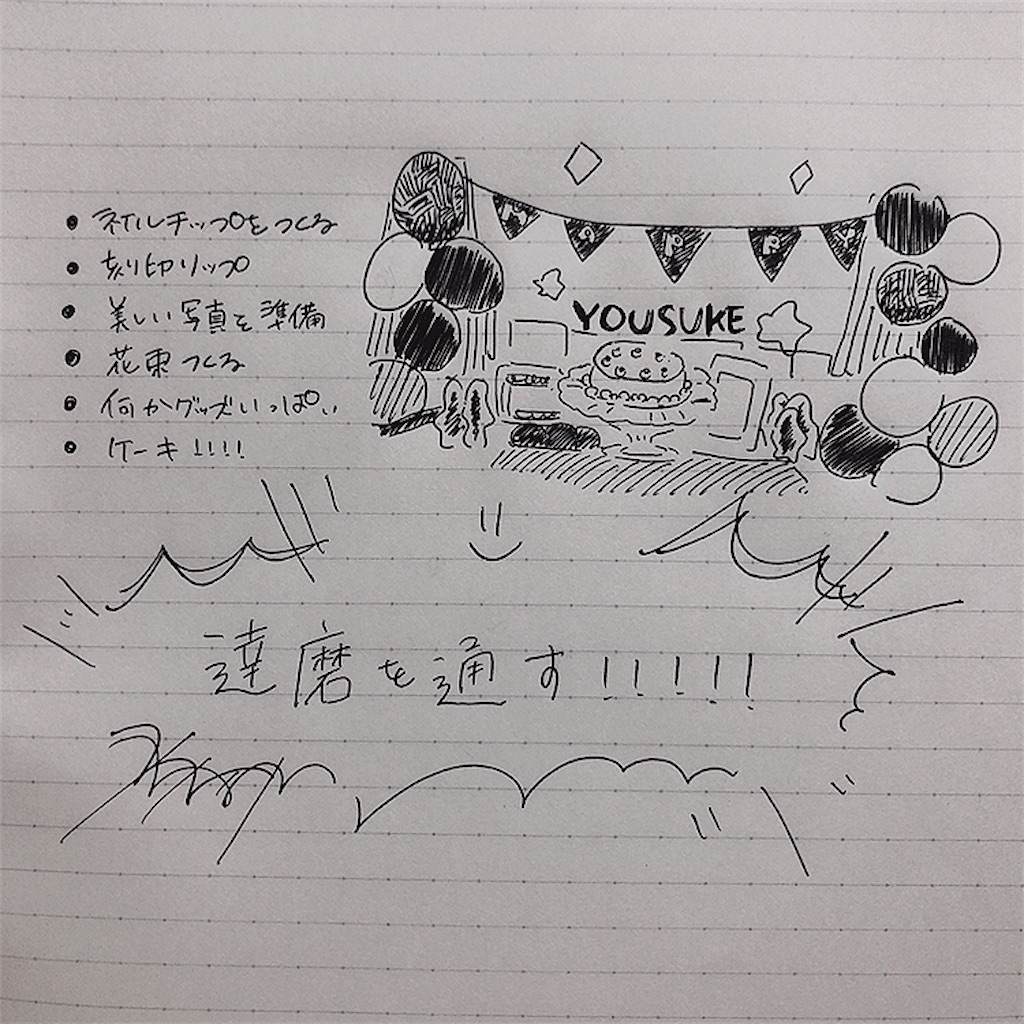 ネイルチップをつくる
刻印リップ
美しい写真を準備
花束つくる
何かグッズいっぱい
ケーキ!!!!
YOUSUKE
達磨を通す!!!!!